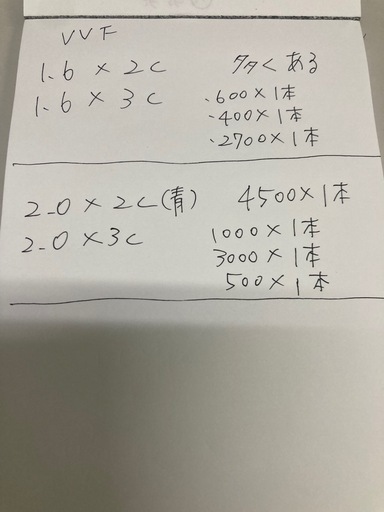 VVF
1.6 × 2c 多くある
1.6 × 3c ・600×1本
・400×1本
・2700×1本
2.0 × 2c(青) 4500×1本
2.0 ×3c 1000×1本
3000×1本
500×1本